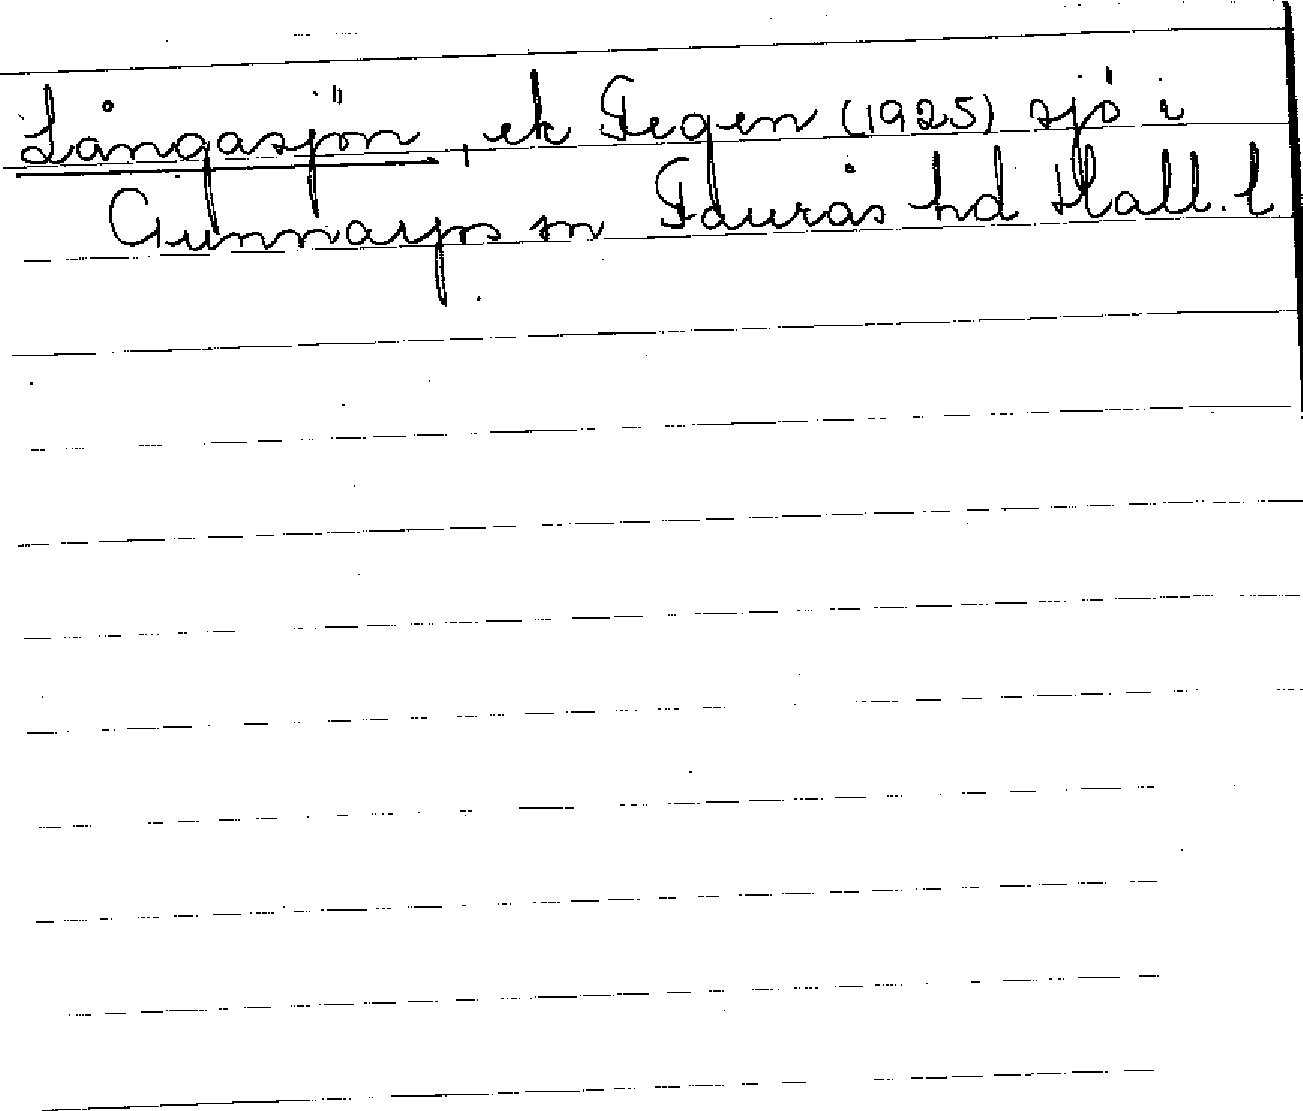 Långasjön, ek Fegen (1925) sjö i
Gunnarps sn Faurås hd Hall. l